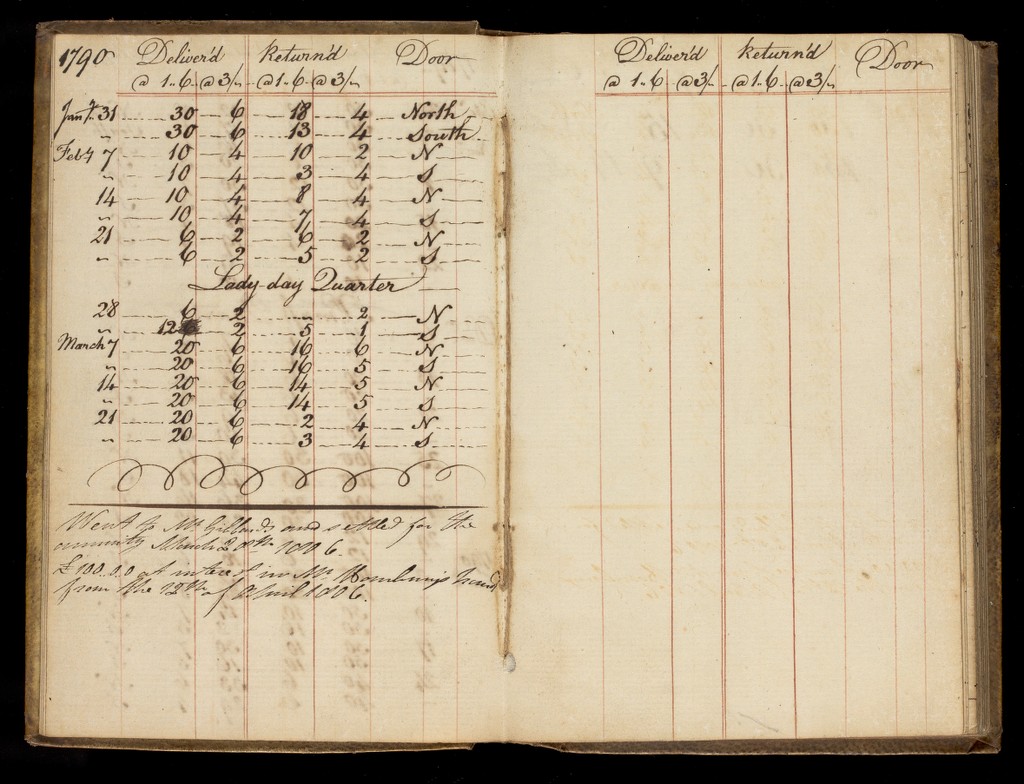 1790 Deliver'd Return'd Door
@ 1..6. @ 3/- @ 1..6 @ 3/-
Jany. 31 30 6 18 4 North
" 30 6 13 4 South
Feby 7 10 4 10 2 N
" 10 4 3 4 S
14 10 4 8 4 N
" 10 4 7 4 S
21 6 2 6 2 N
" 6 2 5 2 S
Lady-day Quarter
28 6 2 " 2 N
" 12 2 5 1 S
March 7 20 6 16 6 N
" 20 6 16 5 S
14 20 6 14 5 N
" 20 6 14 5 S
21 20 6 2 4 N
" 20 6 3 4 S
Went to Mr and settled for the
March 1806.
£100.0.0 at interest in Mr hands
from the 12th of April 1806.
Deliver'd Return'd Door
@ 1..6 @ 3/- @ 1..6 @ 3/-